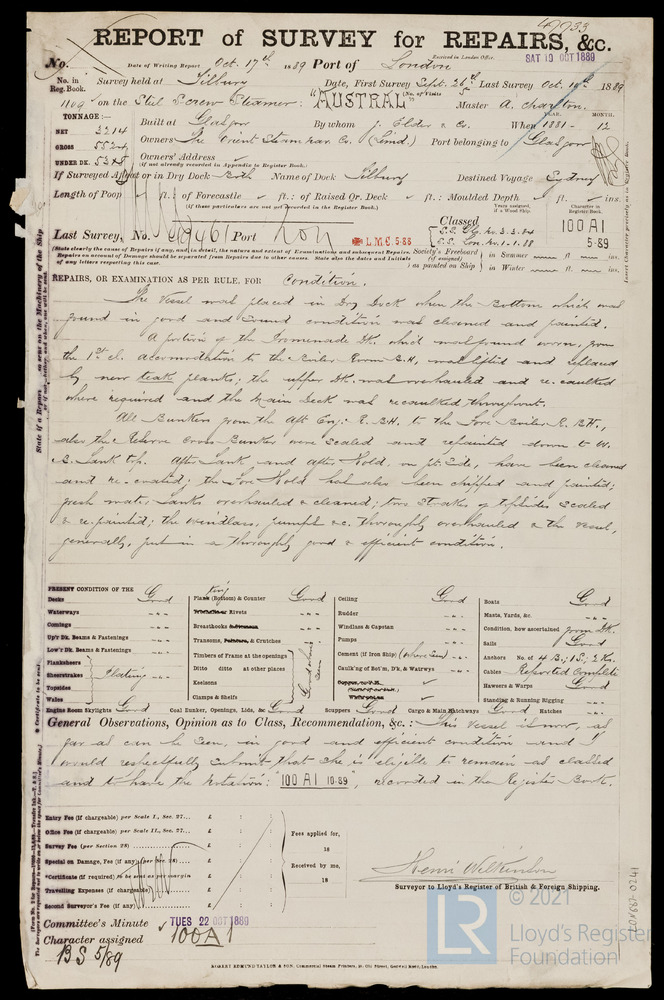 47733
REPORT of SURVEY for REPAIRS, &c.
No. Date of Writing Report Oct. 17th 1889 Port of London Received in London Office, SAT 19 OCT 1889
No. in Reg. Book. Survey held at Tilbury Date, First Survey Sept. 26th Last Survey Oct. 1889
1109 on the Steel Screw Steamer: "AUSTRAL" Master A. Charlton.
TONNAGE:—
NET 3214
GROSS 5524
UNDER DK.
Built at Glasgow By whom J. Elder & Co. When 1881 — 12 YEAR. MONTH.
Owners The Orient Steam Nav. Co. (Limd.) Port belonging to Glasgow
Owners' Address
(if not already recorded in Appendix to Register Book.)
If Surveyed Afloat or in Dry Dock Both Name of Dock Tilbury Destined Voyage Sydney
Length of Poop ft.: of Forecastle ft.: of Raised Qr. Deck ft.: Moulded Depth ft. ins.
(if these particulars are not yet recorded in the Register Book.)
Last Survey, No. 46461 Port Lon L.M.C. 5.88
Classed
S.S. Gls. No. 3.3.84
S.S. Lon. No. 1.1.88
Character in Register Book.
100 A1
5.89
(State clearly the cause of Repairs if any, and, in detail, the nature and extent of Examinations and subsequent Repairs. Repairs on account of Damage should be separated from Repairs due to other causes. State also the dates and Initials of any letters respecting this case.
Society's Freeboard (if assigned) as painted on Ship
in Summer ft ins.
in Winter ft ins.
REPAIRS, OR EXAMINATION AS PER RULE, FOR Condition.
The Vessel was placed in Dry Dock when the Bottom which was
found in good and sound condition was cleaned and painted.
A portion of the Promenade Dk. which was found worn, from
the 1st cl. accommodation to the Boiler Room B.H, was lifted and replaced
by new teak planks; the upper Dk. was overhauled and re.caulked
where required and the Main Deck was recaulked throughout.
All Bunkers from the Aft Eng: R. BH. to the Fore Boiler R. BH.,
also the Reserve Cross Bunker were scaled and repainted down to W.
B. Tank top. After Tank, and After Hold, on pt. side, have been cleaned
and re.coated; the Fore Hold has also been chipped and painted;
fresh water Tanks overhauled & cleaned; two strakes of topsides scaled
& re.painted; the windlass, pumps &c. thoroughly overhauled & the vessel,
generally, put in a thoroughly good & efficient condition.
PRESENT CONDITION OF THE
Decks Good
Waterways " "
Comings " "
Up'r Dk. Beams & Fastenings " "
Low'r Dk. Beams & Fastenings " "
Planksheers
Sheerstrakes
Topsides
Wales
Plating
Engine Room Skylights Good
Plank (Bottom) & Counter Good
Rivets
Breasthooks
Transoms, & Crutches
Timbers of Frame at the openings
Ditto ditto at other places
Keelsons
Clamps & Shelfs
Coal Bunker, Openings, Lids, &c Good
Ceiling Good
Rudder " "
Windlass & Capstan " "
Pumps " "
Cement (if Iron Ship) (where seen) " "
Caulk'ng of Bot'm, Dk, & Watrwys
Scuppers Good Cargo & Main Hatchways Good Hatches
Boats Good
Masts, Yards, &c. " "
Condition, how ascertained from Dk.
Sails Good
Anchors No. of 4 B.; 1 S.; 2 Ks.
Cables Reported Complete
Hawsers & Warps Good
Standing & Running Rigging " "
General Observations, Opinion as to Class, Recommendation, &c. :— This Vessel is now, as
far as can be seen, in good and efficient condition and I
would respectfully submit that she is eligible to remain as classed
and to have the Notation: "100 A1 10.89", recorded in the Register Book.
Entry Fee (if chargeable) per Scale I., Sec. 27... £ : :
Office Fee (if chargeable) per Scale II., Sec. 27... £ : :
Survey Fee (per Section 28) £ : :
Special on Damage, Fee (if any) per Sec. 28)... £ : :
*Certificate (if required) to be sent as per margin
Travelling Expenses (if chargeable) £ : :
Second Surveyor's Fee (if any) £ : :
Fees applied for,
18
Received by me,
18
Henri Wilkinson
Surveyor to Lloyd's Register of British & Foreign Shipping.
Committee's Minute TUES 22 OCT 1889
Character assigned 100A1
BS 5/89
LON687-0241
© 2021
LR
Lloyd's Register
Foundation
ROBERT EDMUND TAYLOR & SON, Commercial Steam Printers, 19, Old Street, Goswell Road, London.